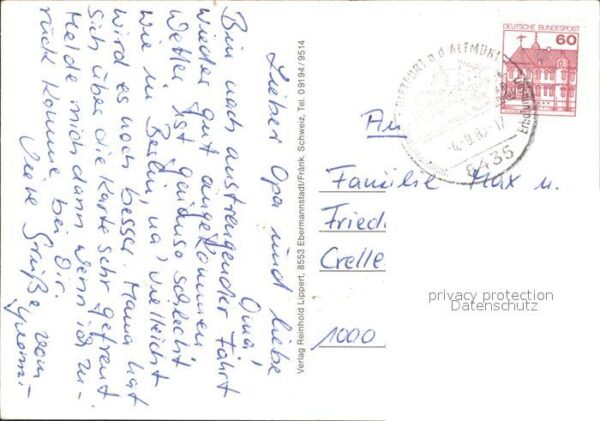 Lieber Opa und liebe
Oma!
Bin nach anstrengender Fahrt
wieder gut angekommen
Wetter ist genauso schlecht
wie in Berlin, na vielleicht
wird es noch besser. Mama hat
sich über die Karte sehr gefreut
Melde mich dann wenn ich zu-
rück komme bei Dir.
Viele Grüße vom
Verlag Reinhold Lippert, 8553 Ebermannstadt/Fränk. Schweiz, Tel. 09194/9514
DEUTSCHE BUNDESPOST
60
A.D. ALTMÜHL
8435
An
Familie Max u.
Fried
Crelle
1000
privacy protection
Datenschutz